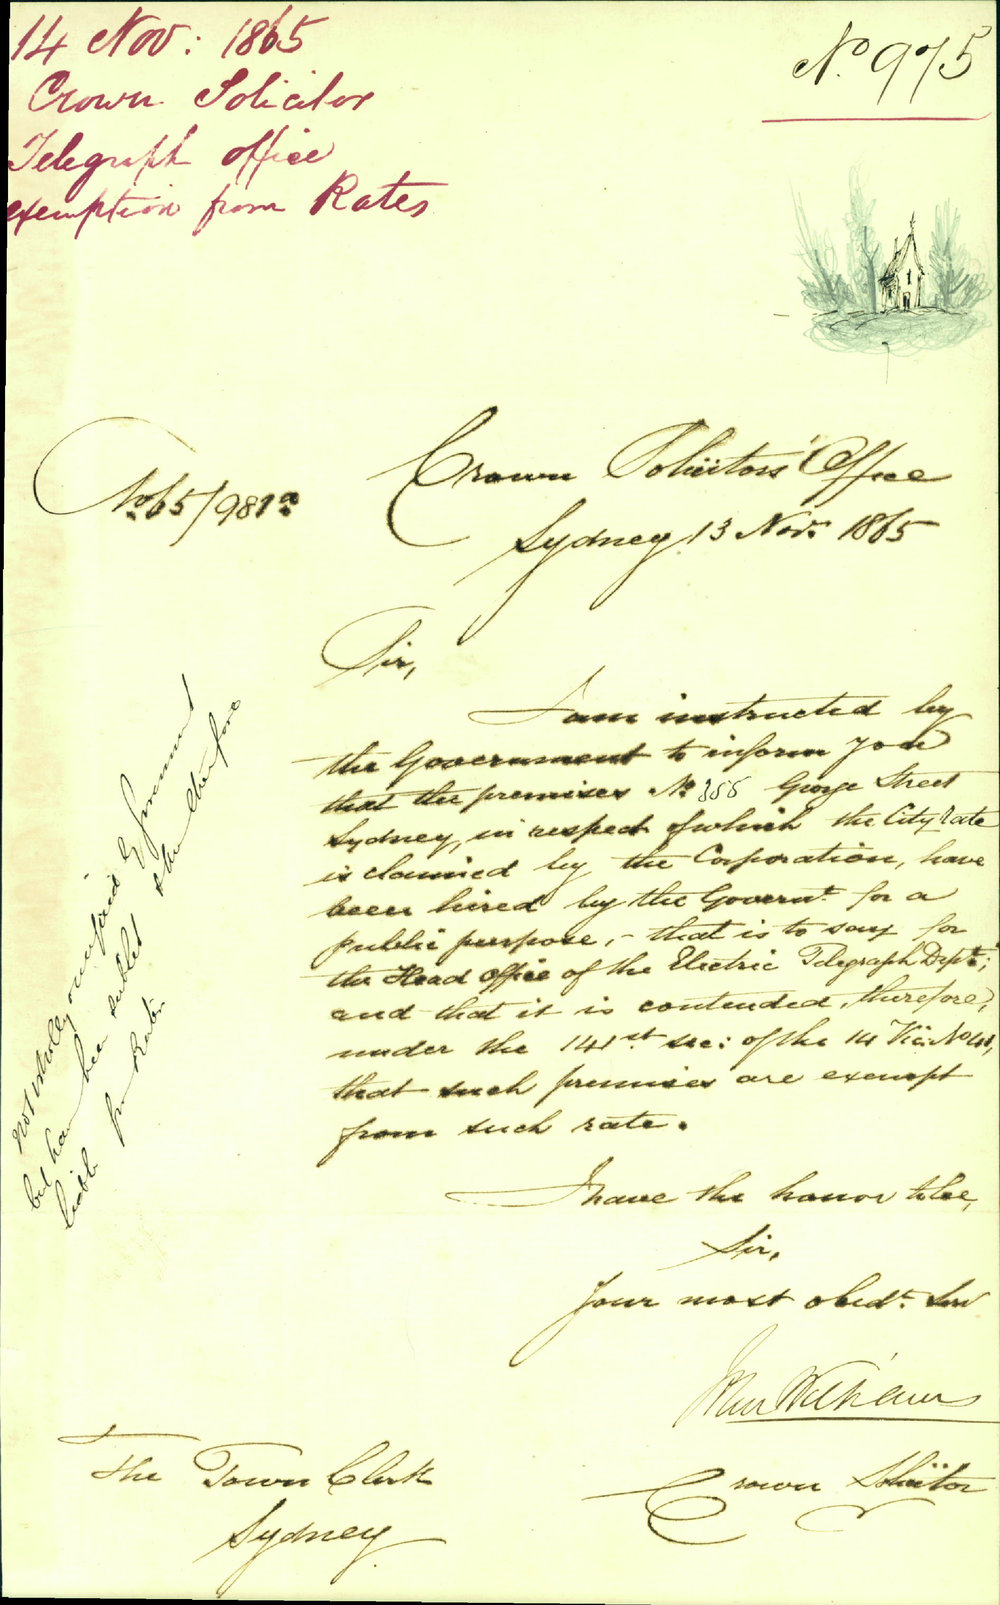 14 Nov: 1865
Crown Solicitor
Telegraph office
exemption from Rates
No 975
No 65/981a
Crown Solicitors' Office
Sydney 13 Novr. 1865
Sir,
I am instructed by
the Government to inform you
that the premises No. George Street
Sydney, in respect of which the City rate
is claimed by the Corporation, have
been hired by the Governt. for a
public purpose, - that is to say for
the Head Office of the Electric Telegraph Dept.;
and that it is contended, therefore,
under the 141st. sec: of the 14 Vic: No 41,
that such premises are exempt
from such rate.
I have the honor to be,
Sir,
Your most obedt. Serv
John Williams
Crown Solicitor
The Town Clerk
Sydney
Not wholly occupied by Government
but have been sublet & are therefore
liable for Rates